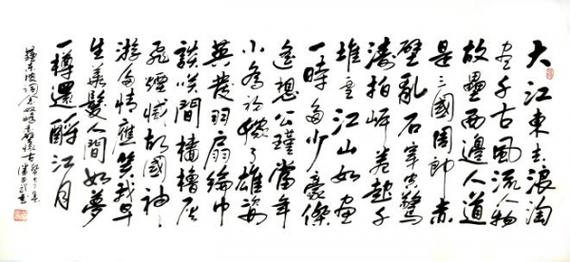 大江東去浪淘
尽千古風流人物
故壘西邊人道
是三國周郎赤
壁亂石穿空驚
濤拍岸卷起千
堆雪江山如画
一時多少豪傑
遙想公瑾當年
小喬初嫁了雄姿
英發羽扇綸巾
談笑間檣櫓灰
飛煙滅故國神
游多情應笑我早
生華髮人間如夢
一樽還酹江月
蘇東坡詞念奴嬌赤壁懷古